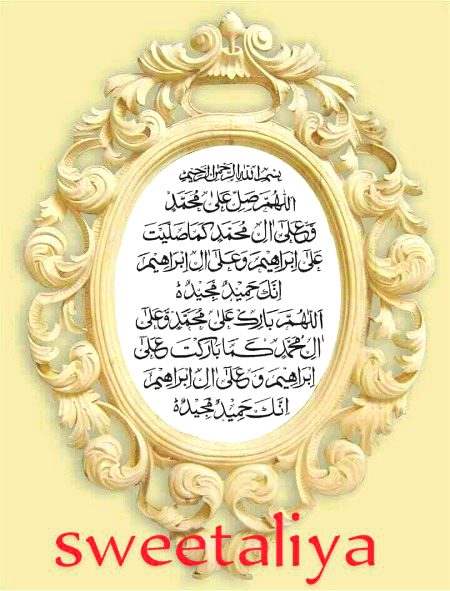 بسم الله الرحمن الرحيم
اللهم صل على محمد
و على ال محمد كما صليت
على ابراهيم و على ال ابراهيم
انك حميد مجيد
اللهم بارك على محمد و على
ال محمد كما باركت على
ابراهيم و على ال ابراهيم
انك حميد مجيد
sweetaliya